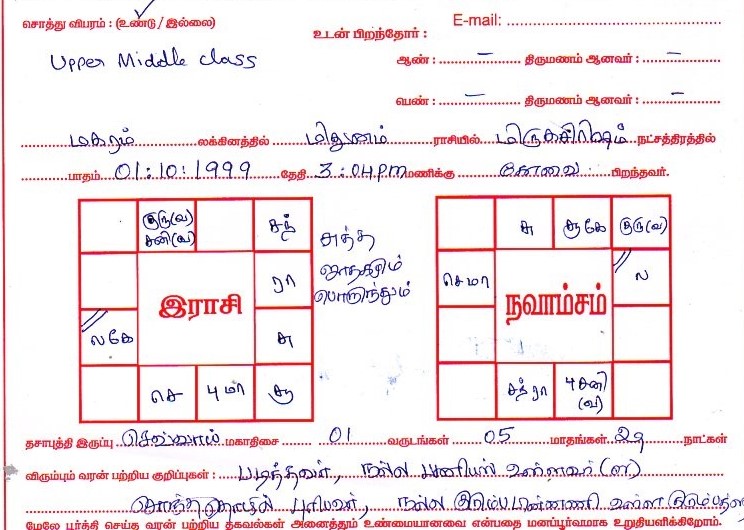 சொத்து விபரம் : (உண்டு / இல்லை)
E-mail:
Upper Middle class
உடன் பிறந்தோர் :
ஆண் : – திருமணம் ஆனவர் : –
பெண் : – திருமணம் ஆனவர் : –
மகரம் லக்கினத்தில் மிதுனம் ராசியில் மிருகசிரிஷம் நட்சத்திரத்தில்
பாதம் 01:10:1999 தேதி 3:04pm மணிக்கு கோவை பிறந்தவர்.
குரு(வ) சனி(வ) சந்
ரா
இராசி
லகே சு
செ பு மா சூ
சுத்த ஜாதகமும் பொருந்தும்
சு சூகே குரு(வ)
செ மா ல
நவாம்சம்
சந் ரா பு சனி (வ)
தசாபுத்தி இருப்பு செவ்வாய் மகாதிசை 01 வருடங்கள் 05 மாதங்கள் 29 நாட்கள்
விரும்பும் வரன் பற்றிய குறிப்புகள் : படித்தவர், நல்ல பணியில் உள்ளவர் (or)
சொந்த தொழில் புரிபவர், நல்ல குடும்ப பின்னணி உள்ள
மேலே பூர்த்தி செய்த வரன் பற்றிய தகவல்கள் அனைத்தும் உண்மையானவை என்பதை மனப்பூர்வமாக உறுதியளிக்கிறோம்.